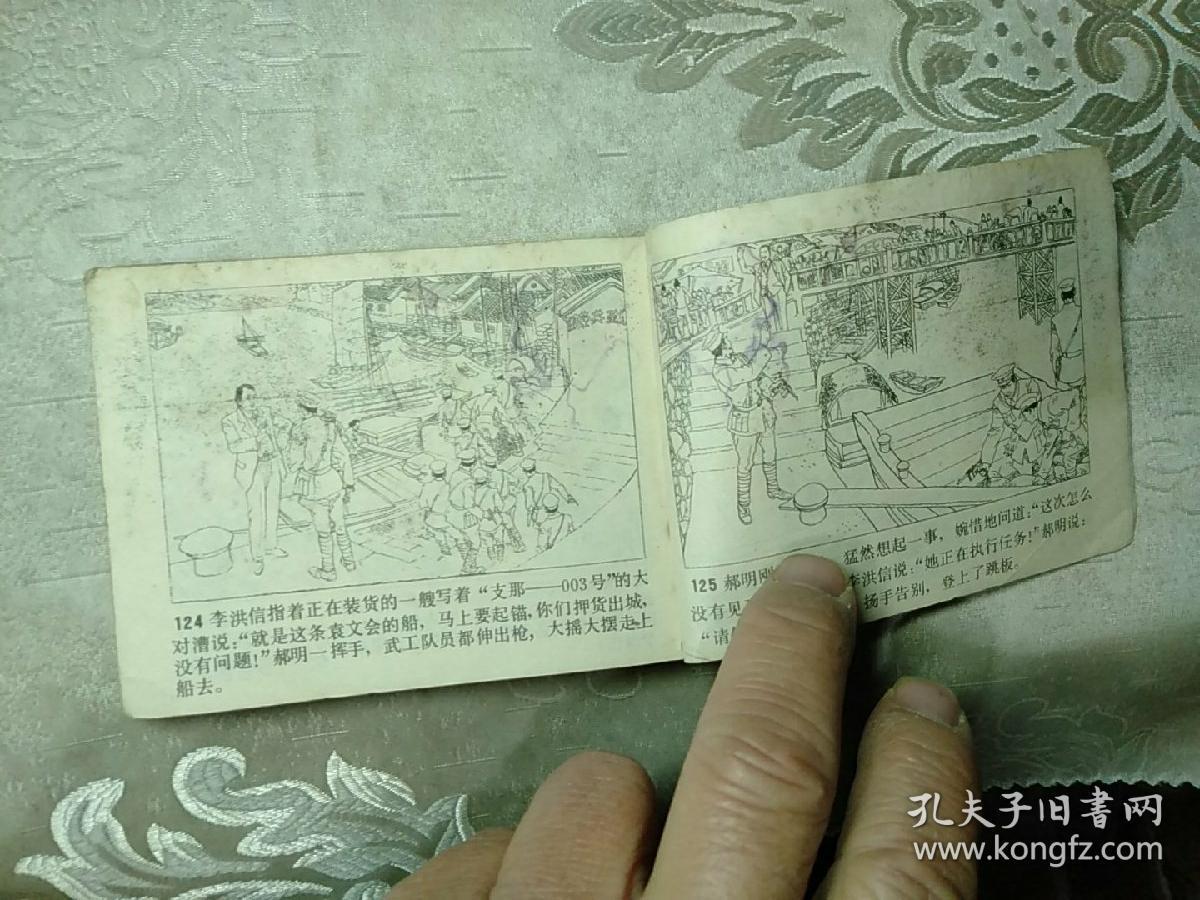 124 李洪信指着正在装货的一艘写着“支那——003号”的大
对漕说：“就是这条袁文会的船，马上要起锚，你们押货出城，
没有问题！”郝明一挥手，武工队员都伸出枪，大摇大摆走上
船去。
125 郝明刚 猛然想起一事，惋惜地问道：“这次怎么
没有见 李洪信说：“她正在执行任务！”郝明说：
“请 扬手告别，登上了跳板。
孔夫子旧書网
www.kongfz.com